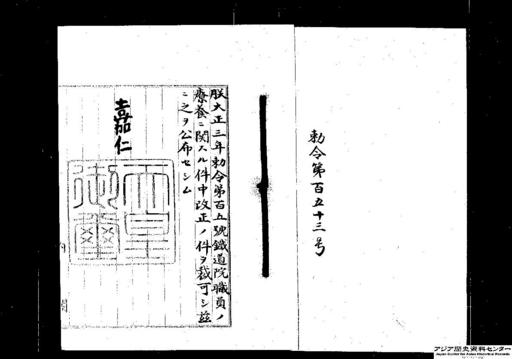 勅令第百五十三号
朕大正三年勅令第百五號鐵道院職員ノ
療養ニ関スル件中改正ノ件ヲ裁可シ茲
ニ之ヲ公布セシム
嘉仁
天皇御璽
内閣
アジア歴史資料センター
Japan Center for Asian Historical Records